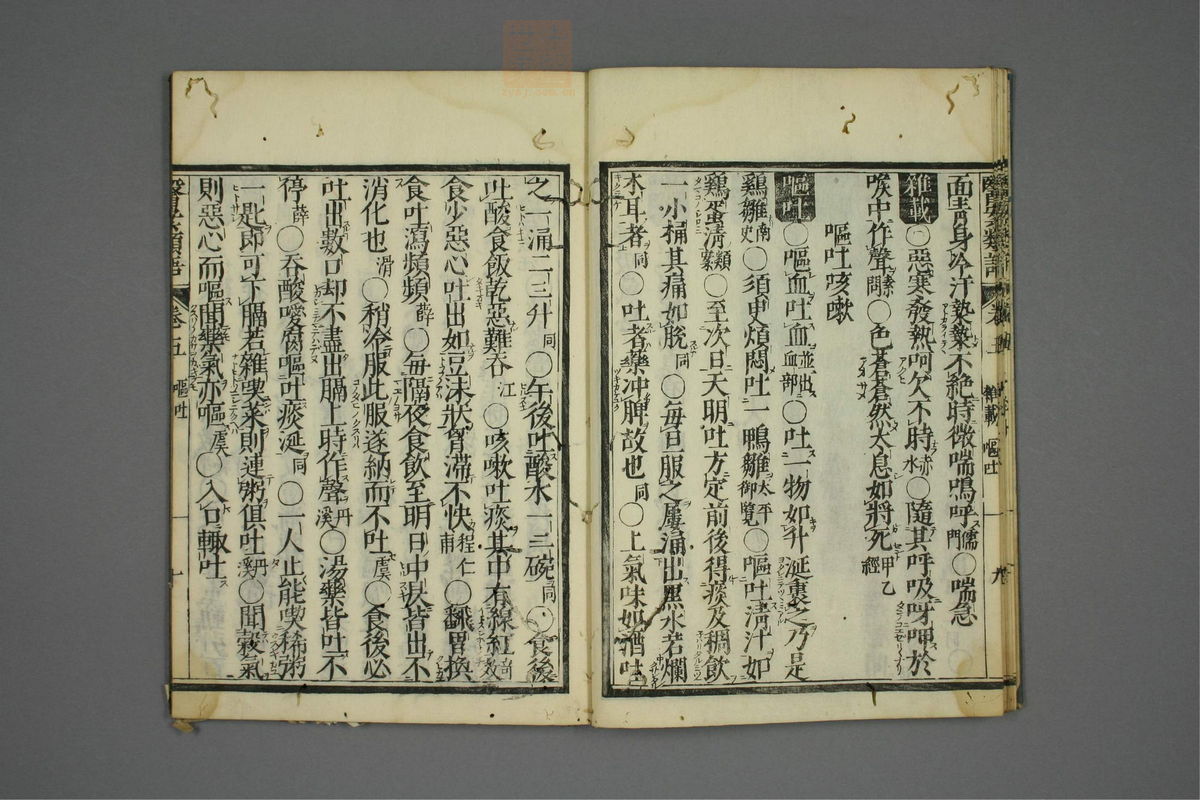 面青身冷汗漐漐不絶時微喘嗚呼儒門○喘急
雜載○惡寒發熱呵欠不時赤水○隨其呼吸呀呷於
喉中作聲素問○色蒼蒼然太息如將死甲乙經
嘔吐咳嗽
嘔吐○嘔血吐血並出血部○吐一物如升涎裹之乃是
鷄雛南史○須臾煩悶吐一鴨雛太平御覽○嘔吐淸汁如
鷄蛋淸類案○至次日天明吐方定前後得痰及稠飲
一小桶其痛如脱同○每旦服之屢涌出黑水若爛
木耳者同○吐者藥冲脾故也同○上氣味如酒吐
之一涌二三升同○午後吐酸水一二碗同○食後
吐酸食飯乾惡難吞江○咳嗽吐痰其中有線紅奇效
食少惡心吐出如豆沫狀胃滯不快程仁甫○飜胃換
食吐瀉頻頻薛○每隔夜食飲至明日中昃皆出不
消化也滑○稍冷服此服遂納而不吐虞○食後必
吐出數口却不盡出膈上時作聲丹溪○湯藥皆吐不
停薛○吞酸噯腐嘔吐痰涎同○一人止能喫稀粥
一匙即可下膈若雜喫菜則連粥俱吐丹溪○聞穀氣
則惡心而嘔聞藥氣亦嘔虞○入口輒吐
卷五 嘔吐